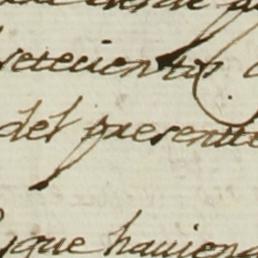 setecientos
del presente
que haviend